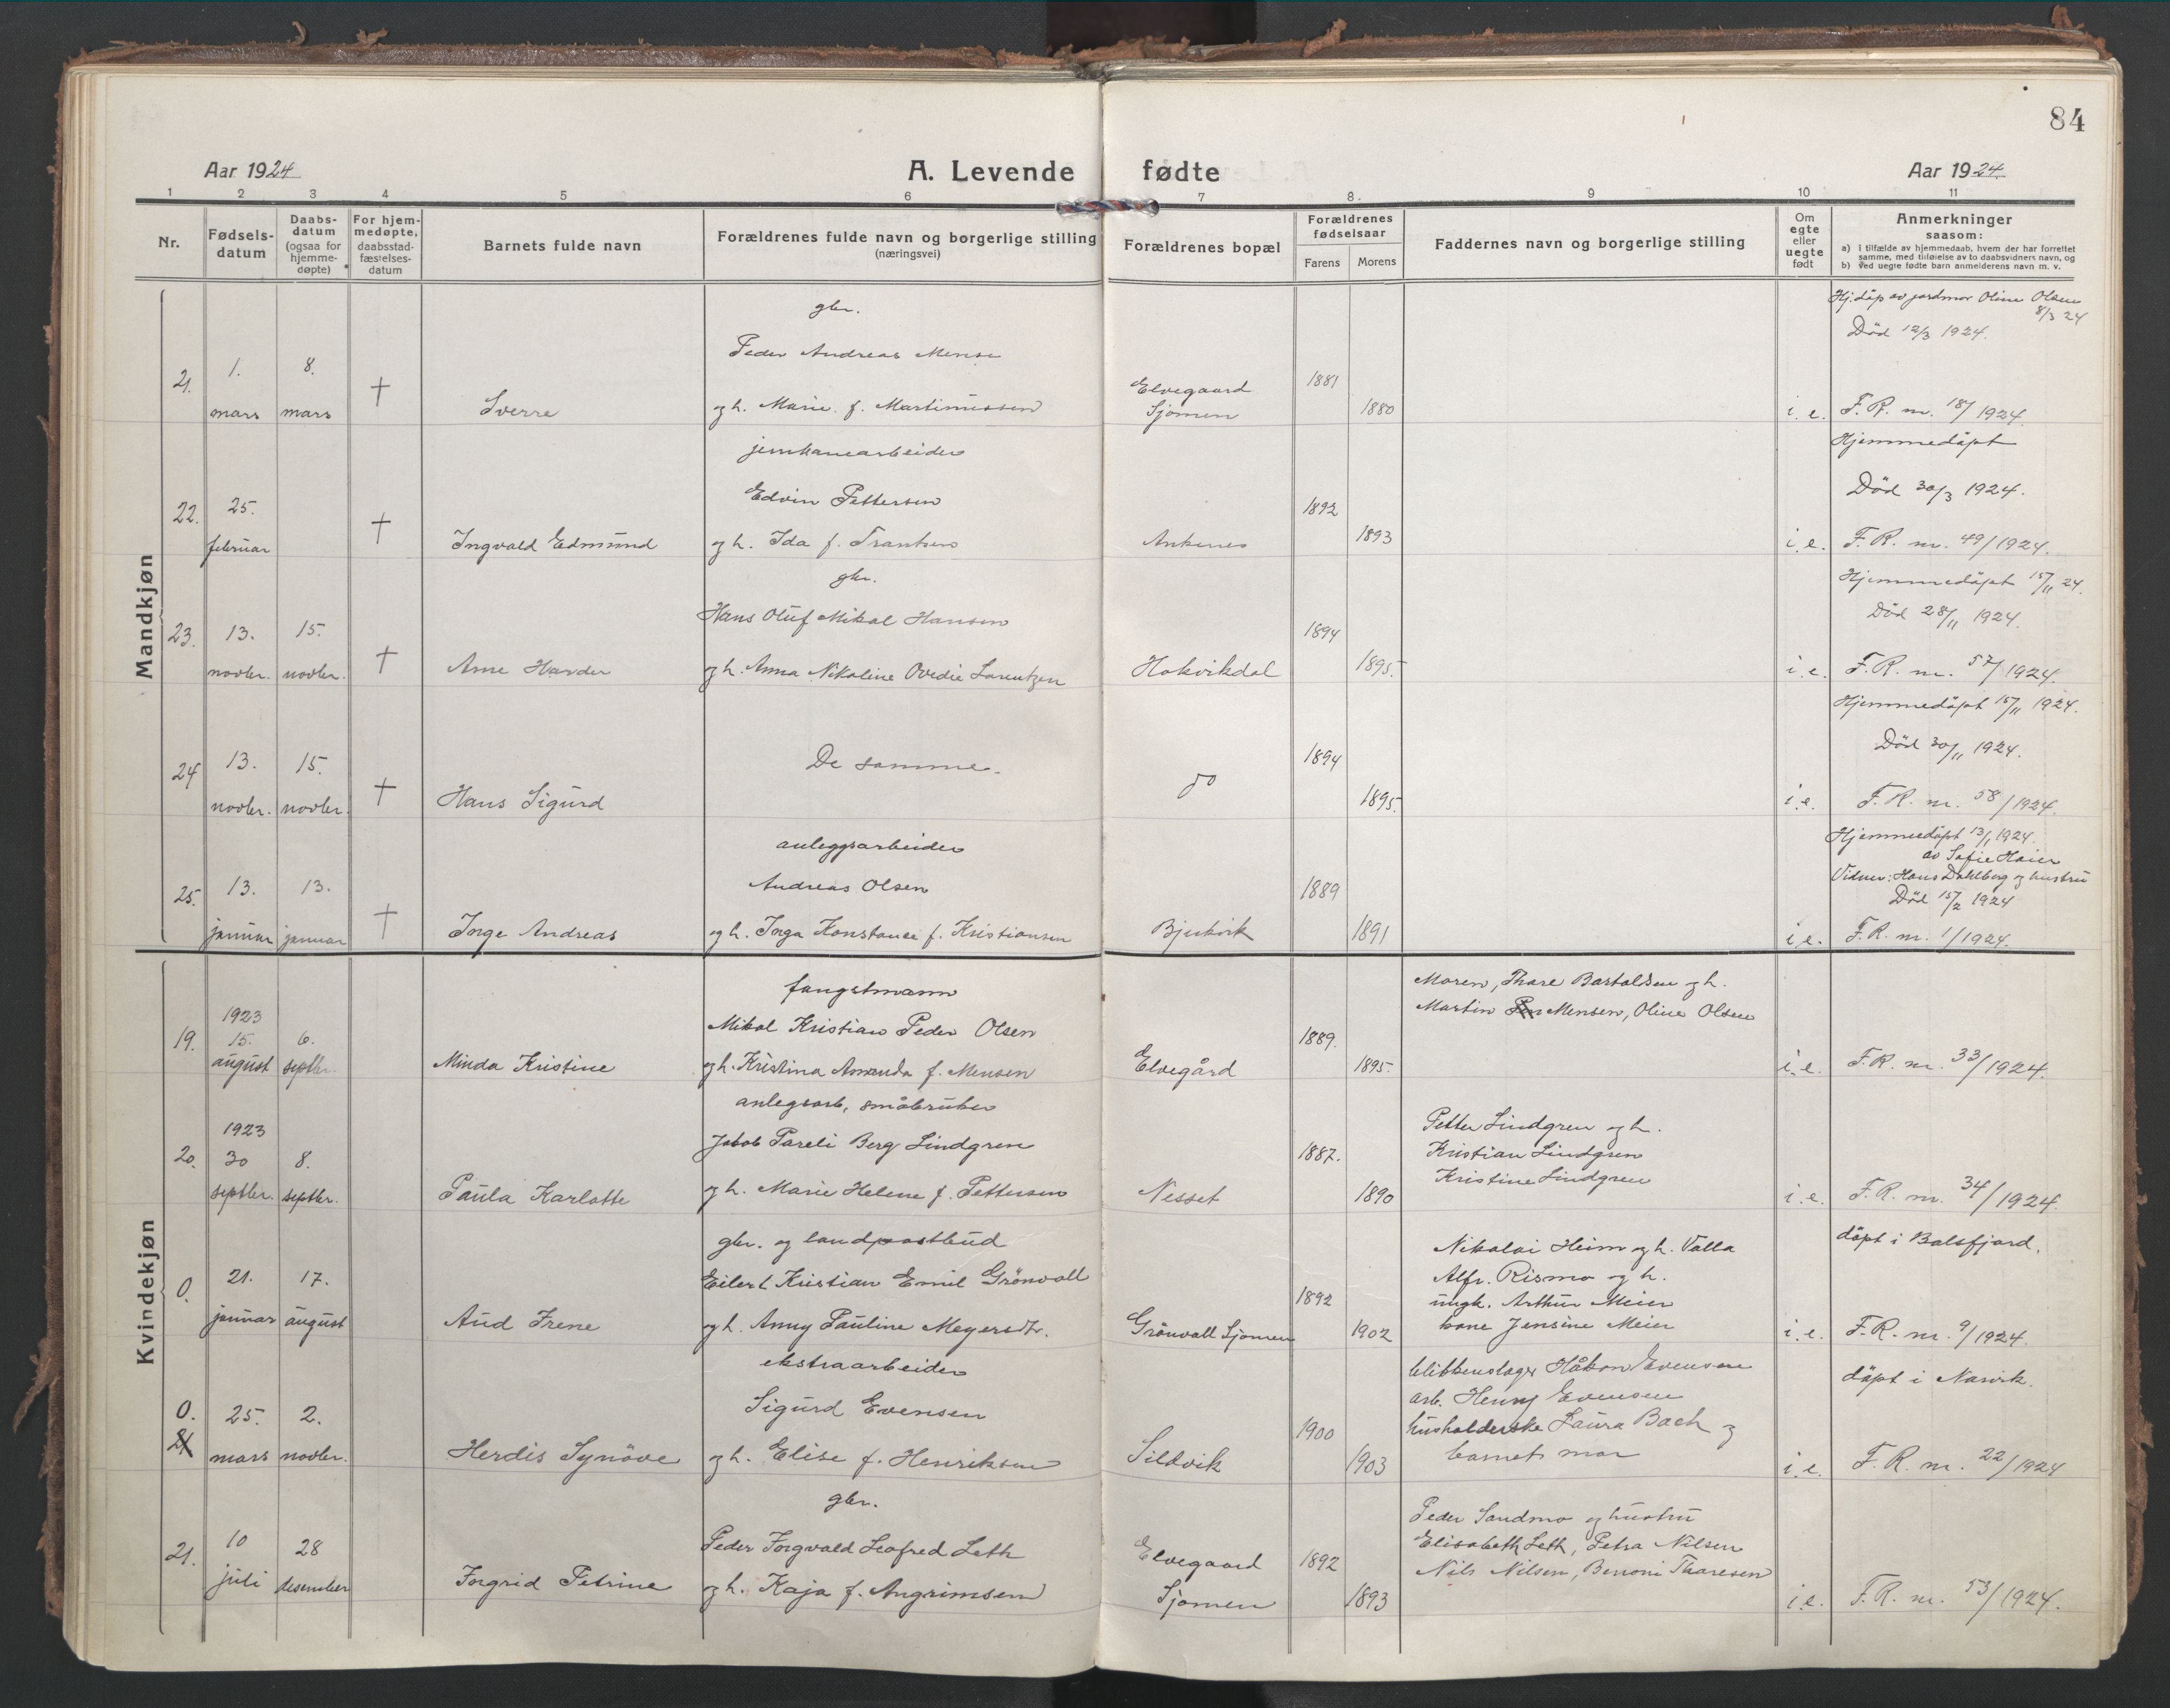 84
Aar 1924
A. Levende fødte
Aar 1924.
1 2 3 4 5 6 7 8. 9 10 11
Nr.
Fødsels-
datum
Daabs-
datum
(ogsaa for
hjemme-
døpte)
For hjem-
medøpte,
daabsstad-
fæstelses-
datum
Barnets fulde navn
Forældrenes fulde navn og borgerlige stilling
(næringsvei)
Forældrenes bopæl
Forældrenes
fødselsaar
Farens Morens
Faddernes navn og borgerlige stilling
Om
egte
eller
uegte
født
Anmerkninger
saasom:
a) i tilfælde av hjemmedaab, hvem der har forrettet
samme, med tilføielse av to daabsvidners navn, og
b) ved uegte fødte barn anmelderens navn m. v.
Mandkjøn
gbr.
Hj.døp av jordmor Oline Olsen
8/3 24
Død 12/3 1924.
Peder Andreas Mensen
21. 1. 8. † Elvegaard 1881
mars mars Sverre og h. Marie f. Martinussen Sjomen 1880 i.e. F.R. nr. 18/1924.
jernbanearbeider
Hjemmedøpt
Edvin Pettersen
Død 30/3 1924.
22. 25. † 1892
februar Ingvald Edmund og h. Ida f. Frantzen Ankenes 1893 i.e. F.R. nr. 49/1924.
gbr.
Hjemmedøpt 15/11 24.
Hans Oluf Mikal Hansen
Død 28/11 1924.
23. 13. 15. † 1894
novbr. novbr. Arne Harder og h. Anna Nikoline Ovedie Lorentzen Hakvikdal 1895. i.e. F.R. nr. 57/1924.
Hjemmedøpt 15/11 1924.
Død 30/11 1924.
24 13. 15. † De samme. do 1894
novbr. novbr. Hans Sigurd 1895. i.e. F.R. nr. 58/1924.
anleggsarbeider
Hjemmedøpt 13/1 1924.
av Sofie Haier
Vidner: Hans Dahlberg og hustru
Andreas Olsen
Død 15/2 1924
25. 13. 13. † 1889
januar januar Inge Andreas og h. Inga Konstance f. Kristiansen Bjerkvik 1891 i.e. F.R. nr. 1/1924.
Kvindekjøn
fangstmann
Moren, Thore Bartoldsen og h.
Martin Mensen, Oline Olsen
1923
19. 15. 6. Mikal Kristian Peder Olsen 1889.
august septbr. Minda Kristine og h. Kristina Amanda f. Mensen Elvegård 1895. i.e. F.R. nr. 33/1924.
anlegsarb, småbruker
1923
20. 30 8. Jakob Pareli Berg Lindgren 1887.
Petter Lindgren og h.
Kristian Lindgren
Kristine Lindgren
septbr. septbr. Paula Karlotte og h. Marie Helene f. Pettersen Nesset 1890 i.e. F.R. nr. 34/1924.
gbr. og landpostbud
døpt i Balsfjord.
Nikolai Heim og h. Valla
Alfr. Rismo og h.
ungk. Arthur Meier
kone Jensine Meier
0. 21. 17. Eilert Kristian Emil Grönvall 1892
januar august Aud Irene og h. Anny Pauline Meyersdtr. Grönvall Sjomen 1902 i.e. F.R. nr. 9/1924.
ekstraarbeider
døpt i Narvik.
blikkenslager Håkon Evensen
arb. Henry Evensen
husholderske Laura Bach og
barnets mor
0. 25. 2. Sigurd Evensen 1900
21 mars novbr. Herdis Synöve og h. Elise f. Henriksen Sildvik 1903 i.e. F.R. nr. 22/1924
gbr.
Peder Sandmo og hustru
Elisabeth Leth, Petra Nilsen
Nils Nilsen, Benoni Tharesen
21. 10 28 Peder Ingvald Leofred Leth Elvegaard 1892
juli desember Ingrid Petrine og h. Kaja f. Angrimsen Sjomen 1893 i.e. F.R. nr. 53/1924.